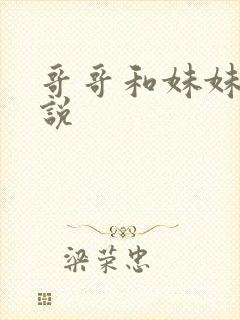 哥哥和妹妹
説
梁荣忠